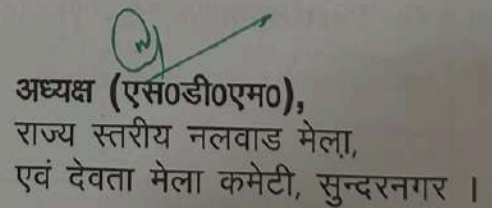 अध्यक्ष (एस0डी0एम0),
राज्य स्तरीय नलवाड मेला,
एवं देवता मेला कमेटी, सुन्दरनगर ।